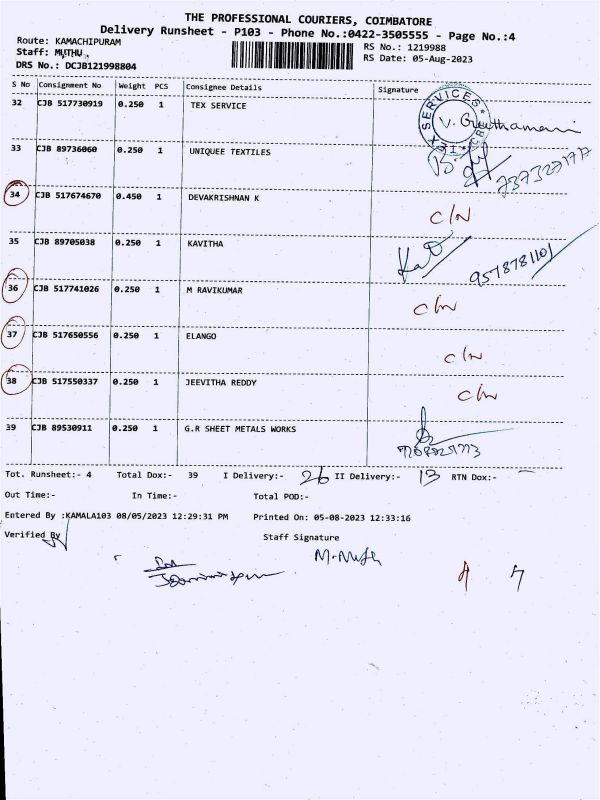 THE PROFESSIONAL COURIERS, COIMBATORE
Delivery Runsheet - P103 - Phone No.:0422-3505555 - Page No.:4
Route: KAMACHIPURAM
RS No.: 1219988
Staff: MUTHU
RS Date: 05-Aug-2023
DRS No.: DCJB121998804
S No Consignment No Weight PCS Consignee Details Signature
32 CJB 517730919 0.250 1 TEX SERVICE
SERVICES
33 CJB 89736060 0.250 1 UNIQUEE TEXTILES
34 CJB 517674670 0.450 1 DEVAKRISHNAN K C/N
35 CJB 89705038 0.250 1 KAVITHA
9578781101
36 CJB 517741026 0.250 1 M RAVIKUMAR C/N
37 CJB 517650556 0.250 1 ELANGO C/N
38 CJB 517550337 0.250 1 JEEVITHA REDDY C/N
39 CJB 89530911 0.250 1 G.R SHEET METALS WORKS
Tot. Runsheet:- 4 Total Dox:- 39 I Delivery:- 26 II Delivery:- 13 RTN Dox:- -
Out Time:- In Time:- Total POD:-
Entered By :KAMALA103 08/05/2023 12:29:31 PM Printed On: 05-08-2023 12:33:16
Verified By Staff Signature